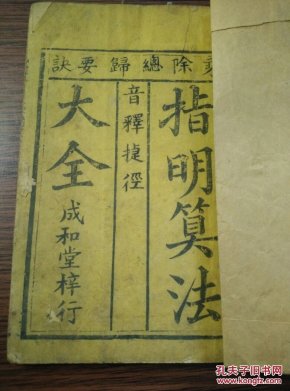 乘除總歸要訣
指明算法
音釋捷徑
大全
成和堂梓行
孔夫子旧书网